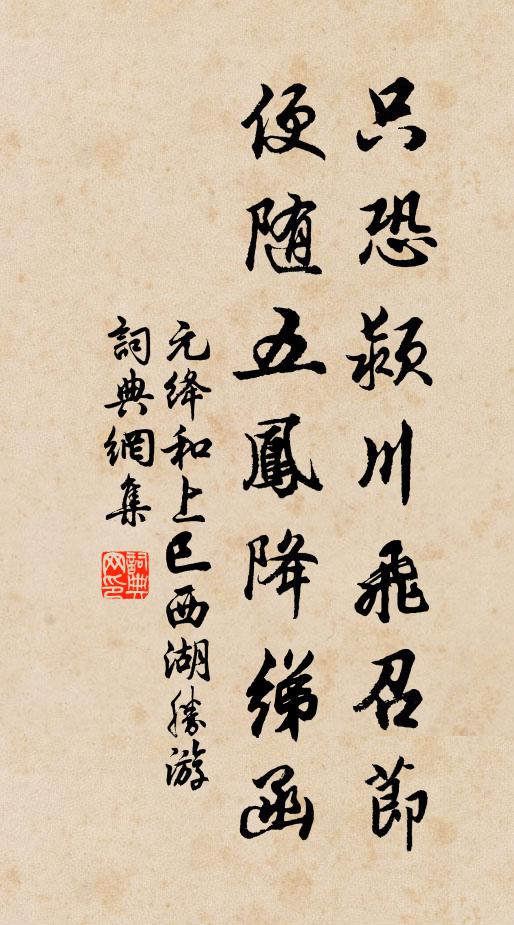 只恐颍川飛召節
便随五鳳降綈函
元绛和上巳西湖勝游
詞典網集
詞典网印